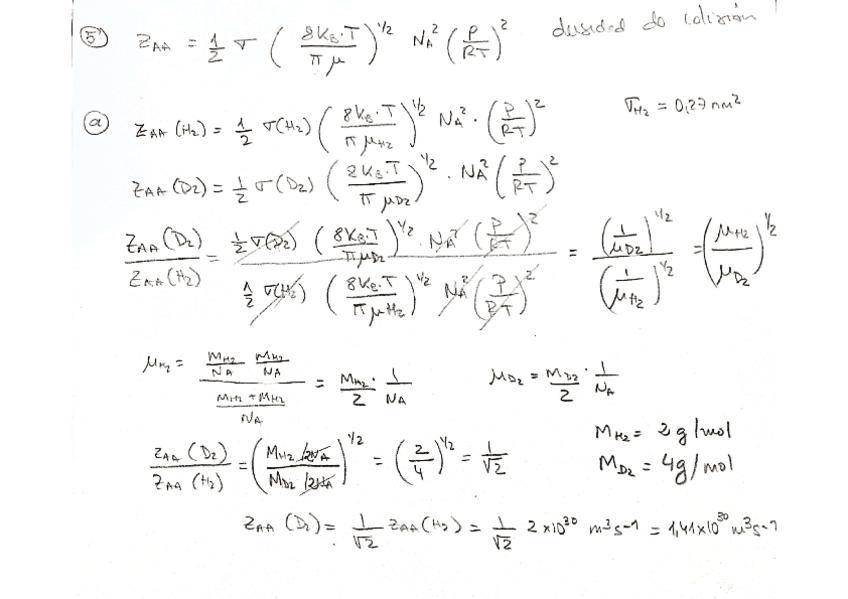 5) Z_AA = 1/2 σ (8K_B·T / π μ)^1/2 N_A^2 (P/RT)^2 densidad de colisión
a) Z_AA (H2) = 1/2 σ(H2) (8K_B·T / π μ_H2)^1/2 N_A^2 · (P/RT)^2 σ_H2 = 0,27 nm^2
Z_AA (D2) = 1/2 σ(D2) (8K_B·T / π μ_D2)^1/2 · N_A^2 (P/RT)^2
Z_AA (D2) / Z_AA (H2) = 1/2 σ(D2) (8K_B·T / π μ_D2)^1/2 · N_A^2 (P/RT)^2 / 1/2 σ(H2) (8K_B·T / π μ_H2)^1/2 N_A^2 (P/RT)^2 = (1/μ_D2)^1/2 / (1/μ_H2)^1/2 = (μ_H2 / μ_D2)^1/2
μ_H2 = (M_H2/N_A M_H2/N_A) / ((M_H2 + M_H2)/N_A) = M_H2/2 · 1/N_A μ_D2 = M_D2/2 · 1/N_A
M_H2 = 2 g/mol
Z_AA (D2) / Z_AA (H2) = (M_H2 /2N_A / M_D2 /2N_A)^1/2 = (2/4)^1/2 = 1/√2 M_D2 = 4g/mol
Z_AA (D2) = 1/√2 Z_AA (H2) = 1/√2 2×10^30 m^3 s^-1 = 1,41×10^30 m^3 s^-1